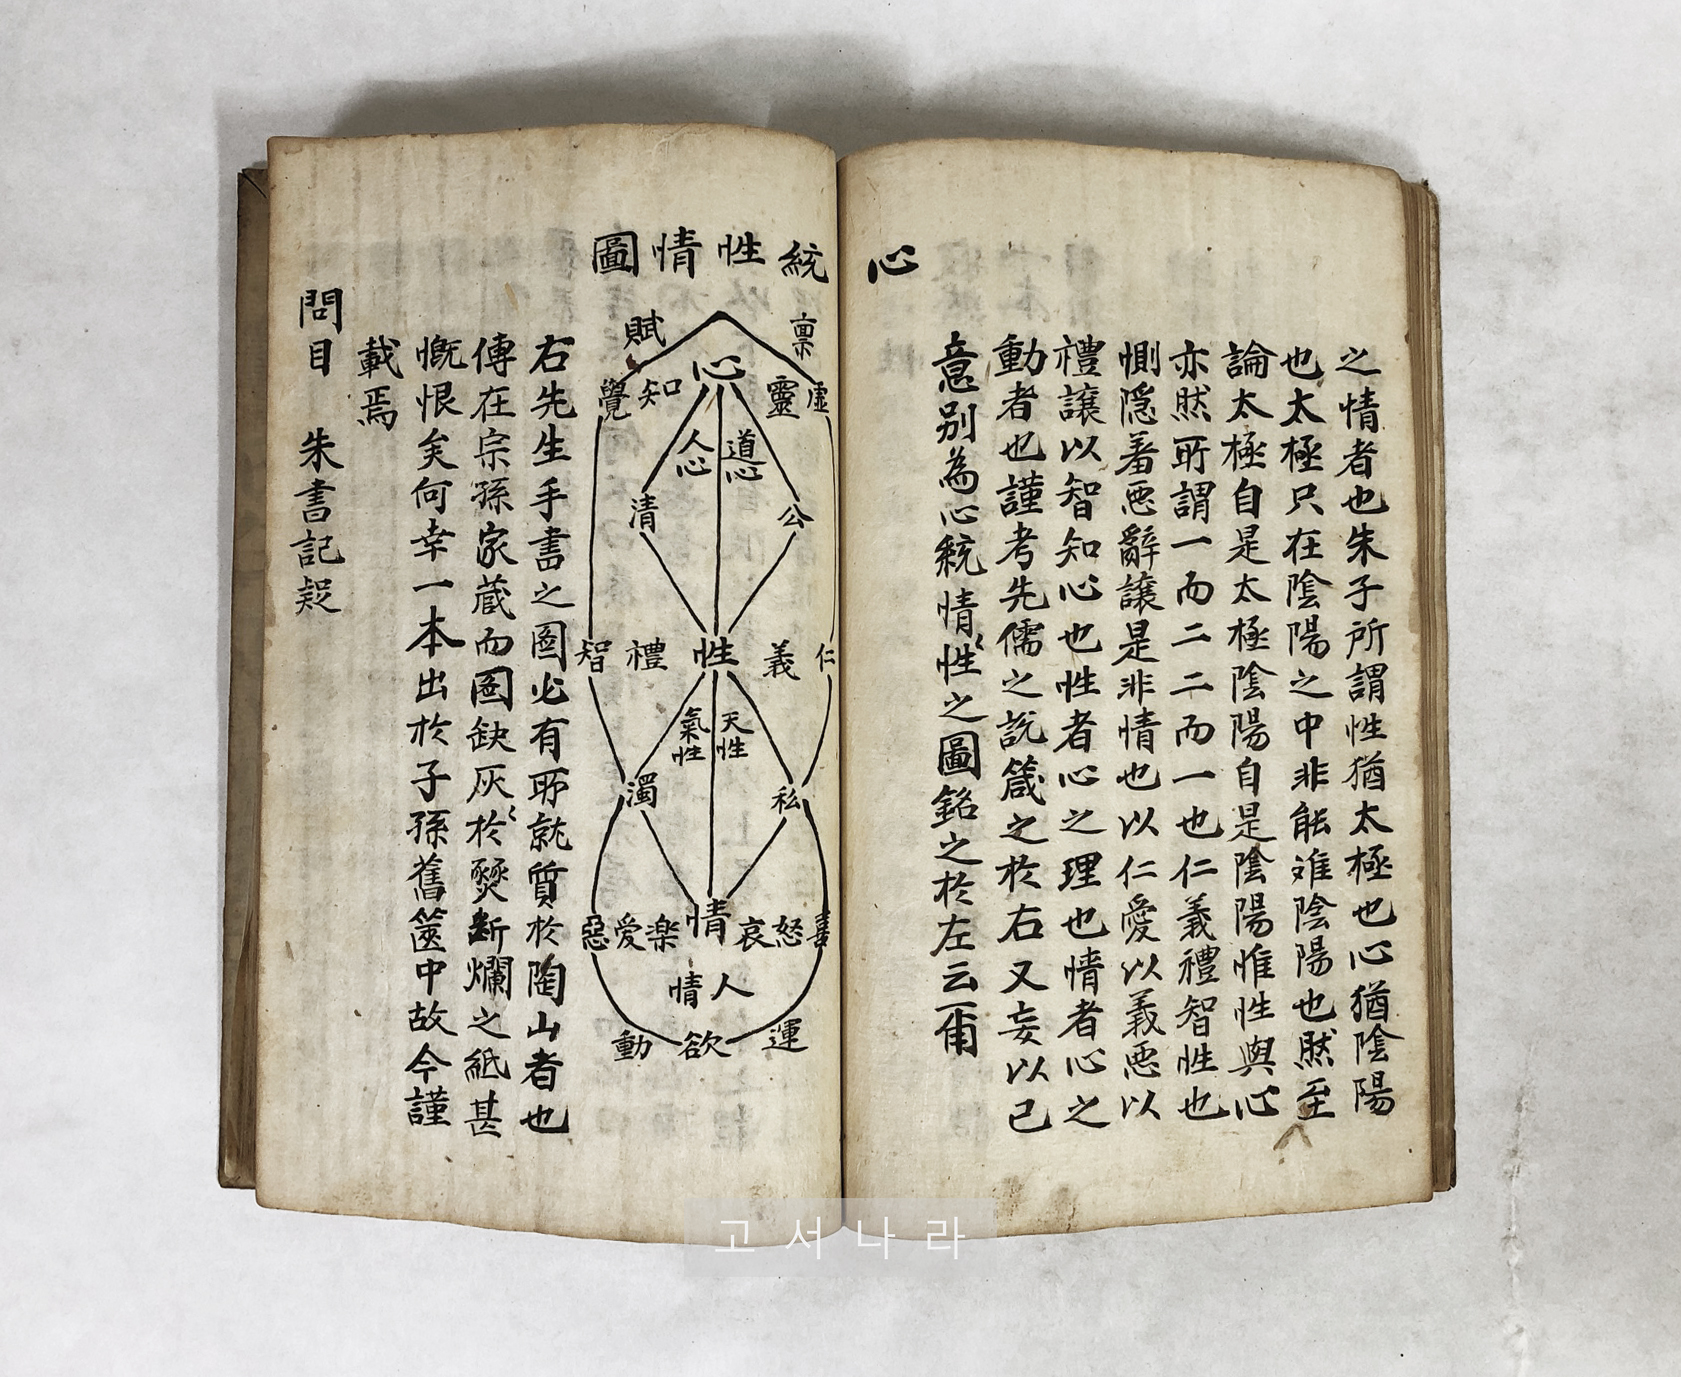 之情者也朱子所謂性猶太極也心猶陰陽
也太極只在陰陽之中非能难陰陽也然至
論太極自是太極陰陽自是陰陽惟性與心
亦然所謂一而二二而一也仁義禮智性也
惻隠羞惡辭讓是非情也以仁愛以義惡以
禮讓以智知心也性者心之理也情者心之
動者也謹考先儒之說箴之於右又妄以己
意別為心統情性之圖銘之於左云爾
心統性情圖
禀 賦
心
虛靈 知覺
道心 人心
公 清
仁義 性 禮智
天性 氣性
私 濁
喜怒哀 情 楽愛惡
人情
運 欲 動
右先生手書之圖必有所就質於陶山者也
傳在宗孫家蔵而圖缺灰於爕断爛之紙甚
慨恨矣何幸一本出於子孫舊篋中故今謹
載焉
問目 朱書記疑
고서나라